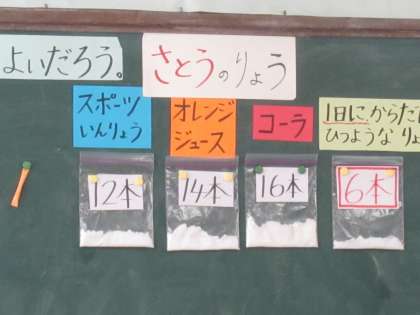 よいだろう。
さとうのりょう
スポーツ
いんりょう
オレンジ
ジュース
コーラ
1日に、からだ
ひつような りょ
12本
14本
16本
6本